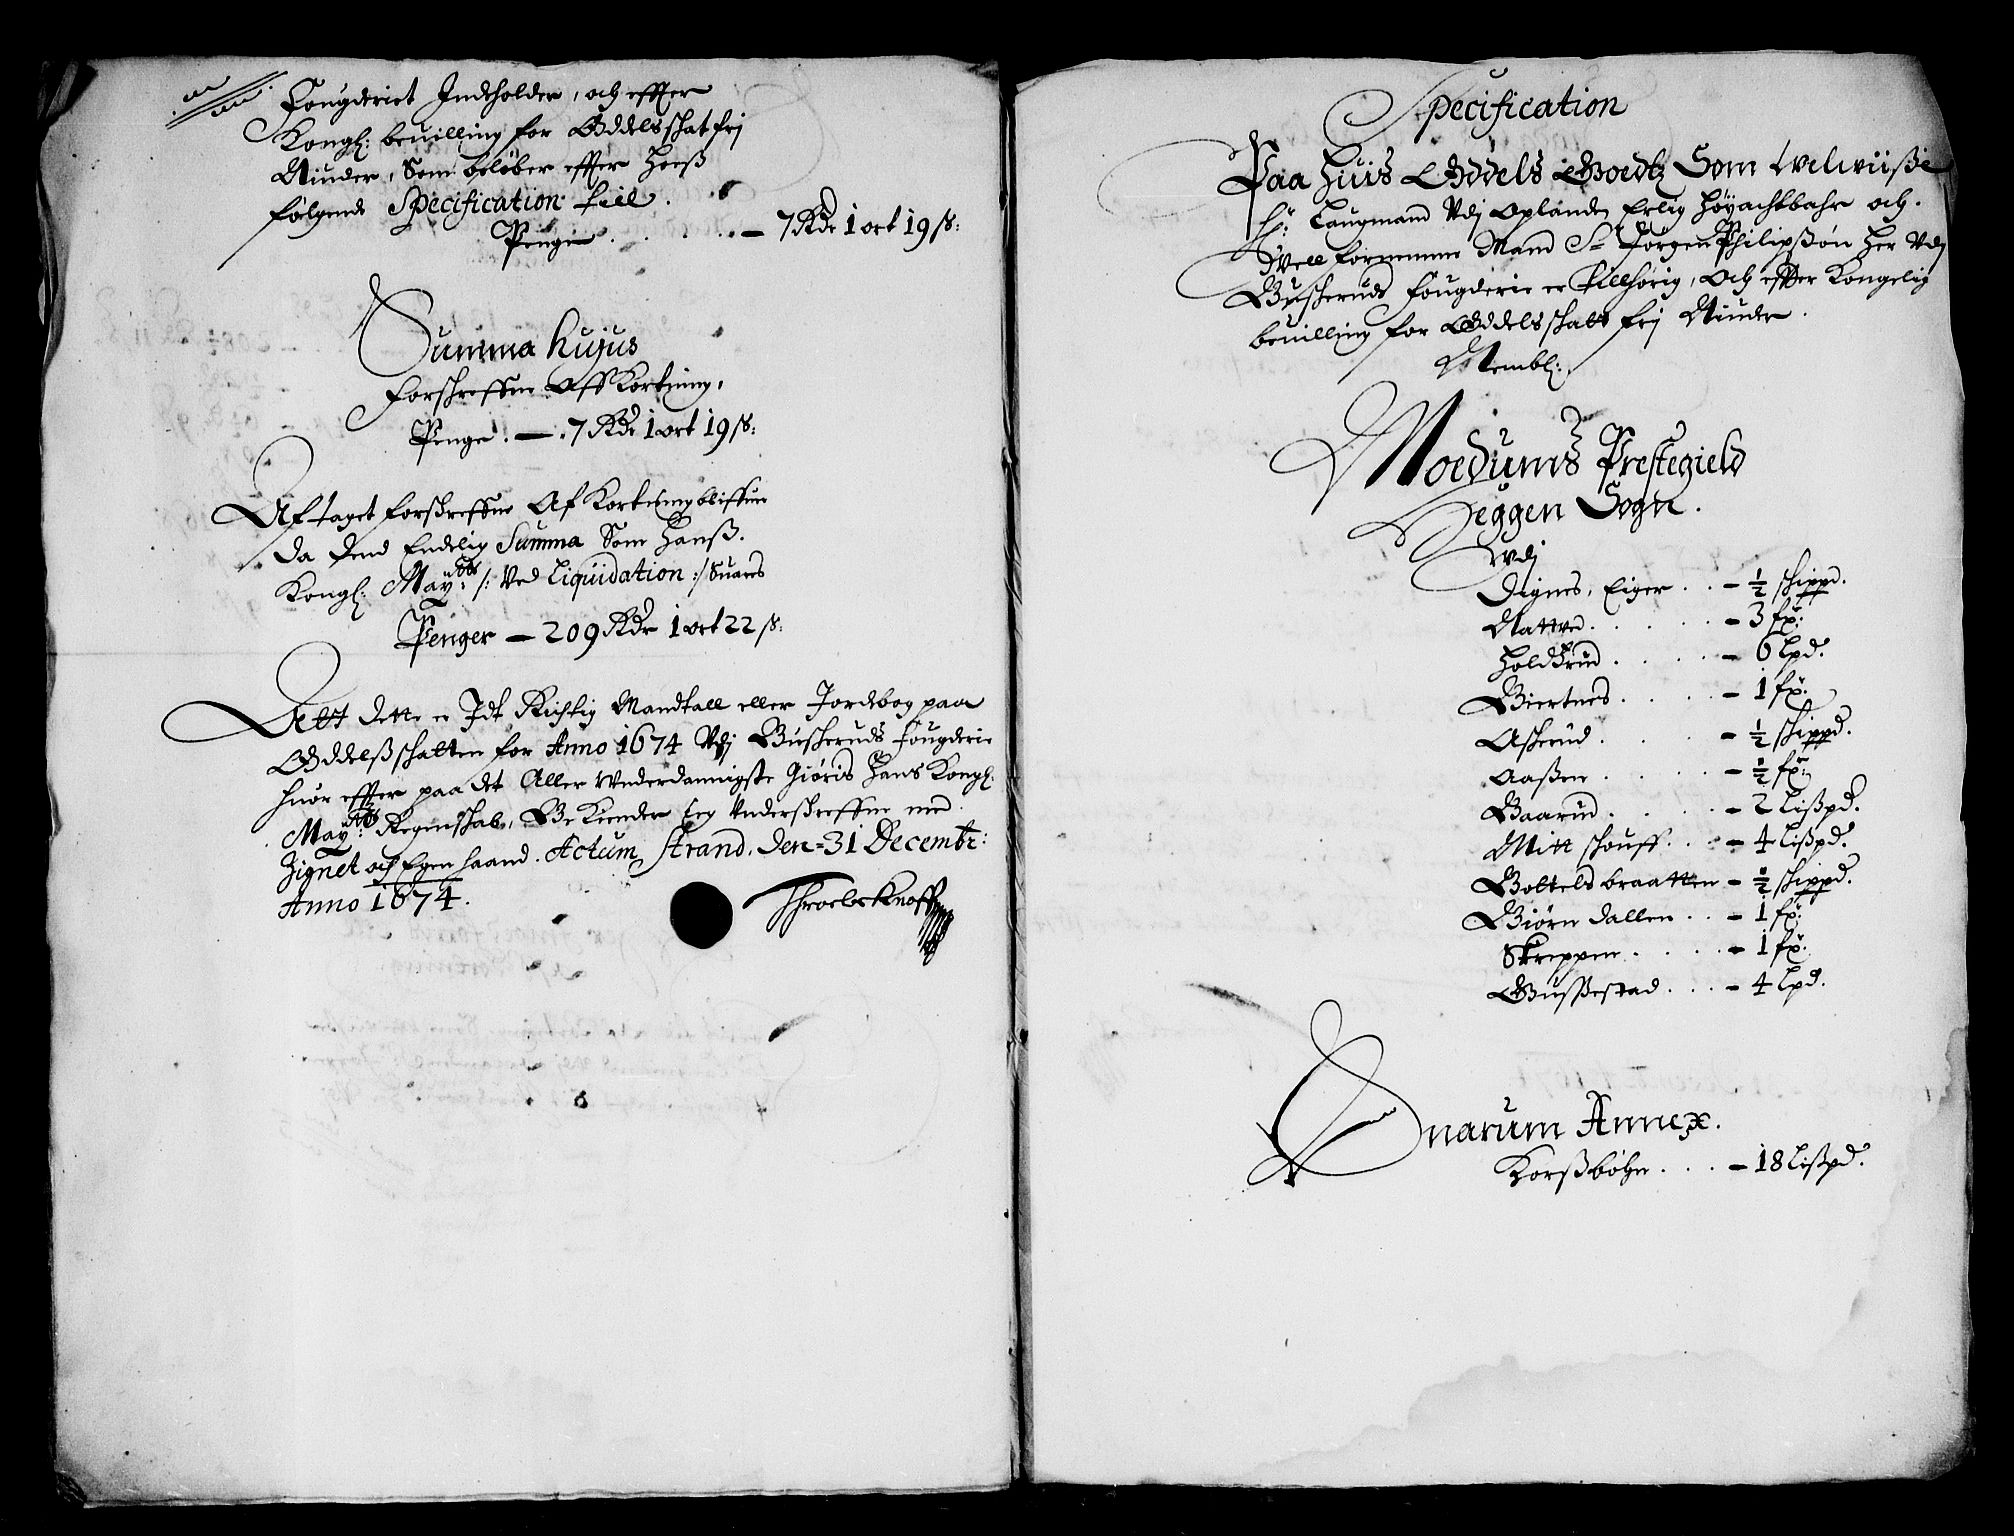 Fougderiet Indeholder, och effter
Kongl: beuilling for Oddelsschat frj
Niuder, Som beløber effter Hoeß
følgende Specification till
Penge . . . . . . — 7 Rdr 1 ort 19 ß:
Summa hujus
forschreffne Aff Kortning,
Penge . — . 7 Rdr 1 ort 19 ß:
Aftaget forschreffne Af Kortning bliffuer
da dend Endelig Summa Som Hanß.
Kongl: Maytt: /: Ved Liquidation :/ Suares
Penger — 209 Rdr 1 ort 22 ß:
Att dette er Jdt Richtig Mandtall eller Jordebog paa
Oddelßschatten for Anno 1674 Vdj Buscheruds fougderie
huor effter paa det Aller Vnderdannigste Giøris Hans Kongl:
Maytts: Regenschab, Be Kiender Jeg Vnderschreffne med
Zignet och Egen haand. Actum Strand, den = 31 Decembr:
Anno 1674.
Throels Knoff
Specification
Paa Huis Oddels Goedtz Som Welwiiße
Hr: Laugmand Vdj Oplanden Erlig Høyachtbahr och
Well fornemme Mand Sr Jørgen Philipßøn Her Vdj
Buscheruds fougderie er Tillhørig, Och effter Kongelig
beuilling for Oddelsschatt frj Niuder.
Nembl:
Moedums Prestegield
Heggen Sogn.
Vdj
Dignes, Eiger . . — ½ schippd.
Nattved . . . . . — 3 fr:
Holdtrud . . . . — 6 Lpd.
Biertnes . . . . — 1 fr:
Ascherud . . . . — ½ schippd.
Aaßen . . . . — ½ fr:
Baarud . . . . — 2 Lißpd.
Mitt schouff . . . — 4 Lißpd.
Bottels braatten — ½ schippd.
Biørn dallen . . — 1 fr:
Skreppen . . . . — 1 fr:
Gußestad . . . — 4 Lpd.
Snarum Annex.
Korßbøhn . . . — 18 Lißpd.